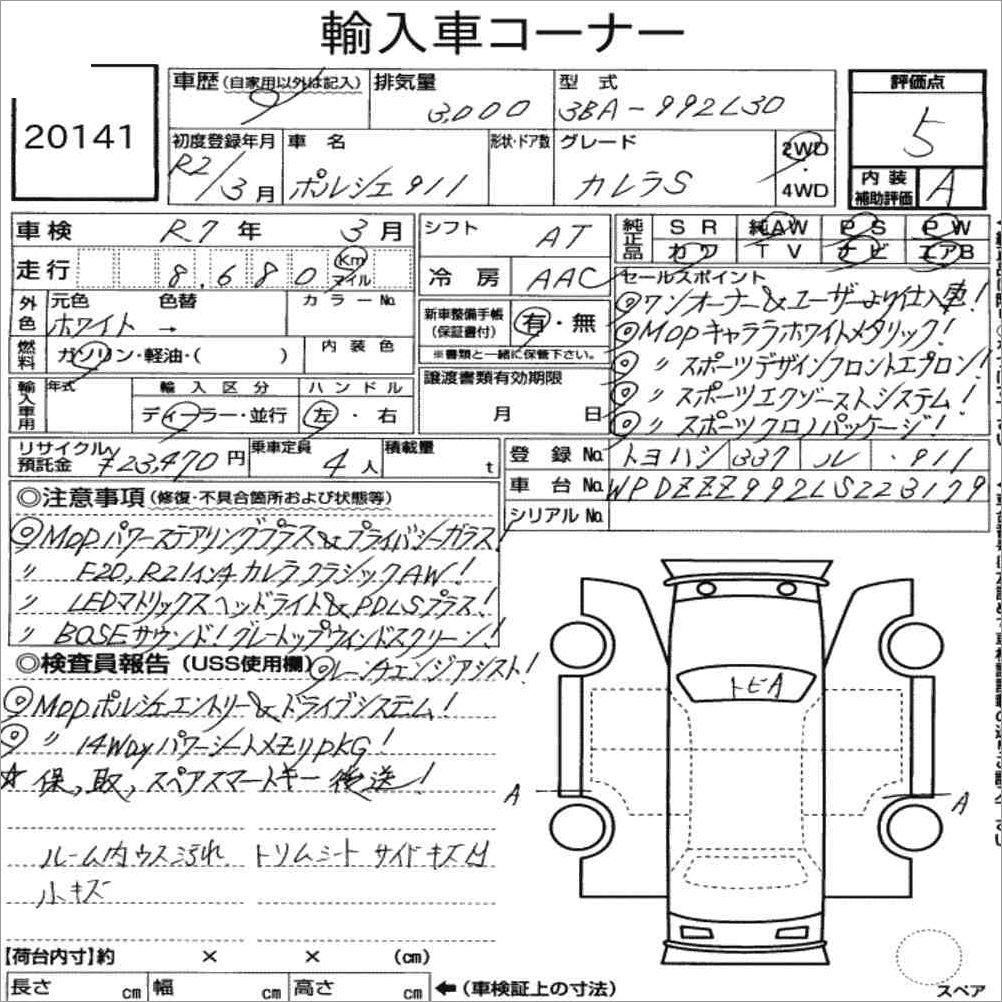 輸入車コーナー
20141
車歴 (自家用以外は記入) 排気量 型式 評価点
3,000 3BA-992L30 5
初度登録年月 車名 形状・ドア数 グレード 2WD
R2/3月 ポルシェ 911 カレラS 4WD
内装補助評価 A
車検 R7年 3月
走行 8,680 Km マイル
外色 元色 色替 カラーNo.
ホワイト →
燃料 ガソリン・軽油・( ) 内装色
輸入車用 年式 輸入区分 ハンドル
ディーラー・並行 左・右
シフト AT
冷房 AAC
新車整備手帳 (保証書付) 有・無
※書類と一緒に保管下さい。
譲渡書類有効期限
月 日
純正品 SR 純AW PS PW
カワ TV ナビ エアB
セールスポイント
◎ワンオーナー&ユーザーより仕入車!
◎MOPキャララホワイトメタリック!
◎〃スポーツデザインフロントエプロン!
◎〃スポーツエクゾーストシステム!
◎〃スポーツクロノパッケージ!
リサイクル預託金 ¥23,470円 乗車定員 4人 積載量 t
登録No. トヨハシ 337 ル ・911
車台No. WPDZZZ992LS223179
シリアルNo.
◎注意事項 (修復・不具合箇所および状態等)
◎MOPパワーステアリングプラス&プライバシーガラス!
〃 F20,R21インチカレラクラシックAW!
〃 LEDマトリックスヘッドライト&PDLSプラス!
〃 BOSEサウンド!グレートップウィンドスクリーン!
◎検査員報告 (USS使用欄) ◎レーンチェンジアシスト!
◎MOPポルシェエントリー&ドライブシステム!
◎〃 14Wayパワーシートメモリpkg!
☆保,取,スペアスマートキー後送!
ルーム内ウス汚れ トリムシート サイドキズ
小キズ
トビA
A A
【荷台内寸】約 × × (cm)
長さ cm 幅 cm 高さ cm ←(車検証上の寸法)
スペア